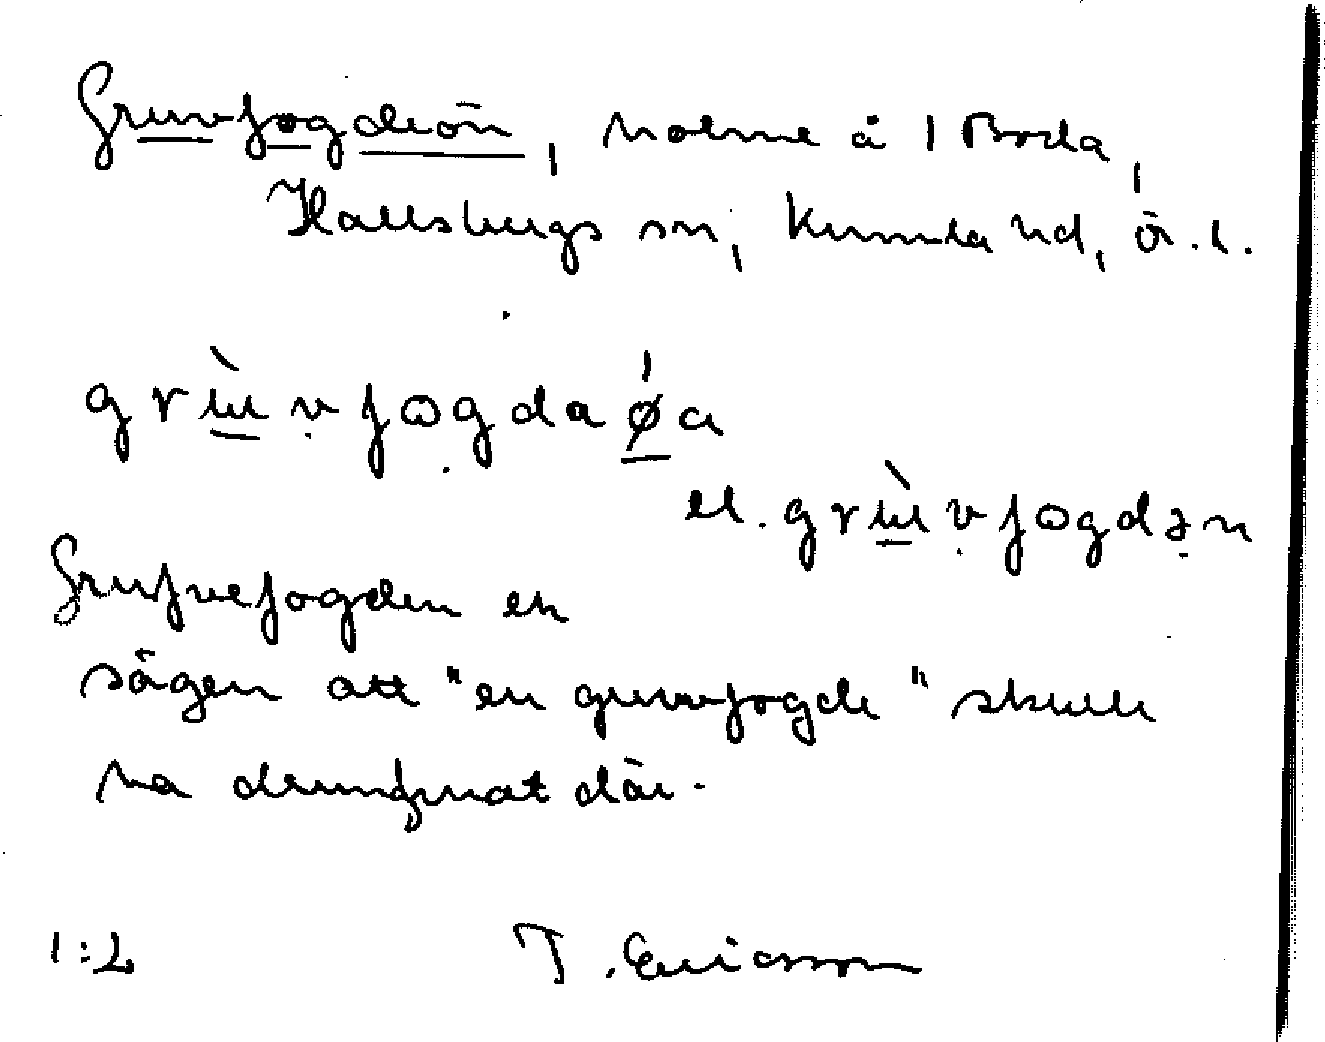 Gruvfogdeön, holme å 1 Boda,
Hallsbergs sn, Kumla hd, Ör. l.
grùvfogdaǿa
el. grùvfogdən
Grufvefogden en
sägen att "en gruvfogde" skulle
ha drunknat där.
1:2 T. Ericsson